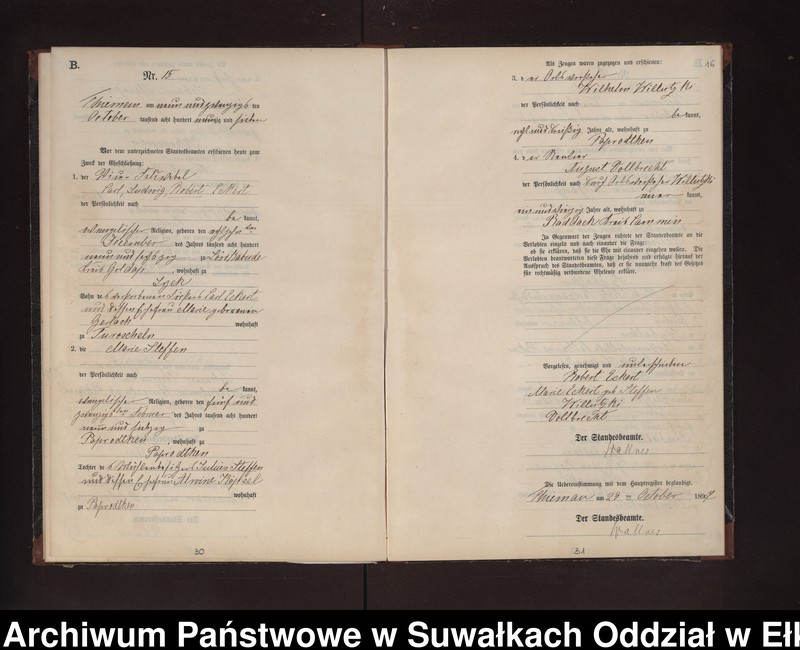 B.
Nr. 15
Thieman am neunundzwanzigsten
October tausend acht hundert neunzig und sieben
Vor dem unterzeichneten Standesbeamten erschienen heute zum
Zweck der Eheschließung:
1. der Vice-Feldwebel
Carl, Ludwig, Robert Eckert
der Persönlichkeit nach
be kannt,
evangelischer Religion, geboren den
des Jahres tausend acht hundert
neun und sechszig zu
Kreis Goldap, wohnhaft zu
Lyck
Sohn des verstorbenen Carl Eckert
und dessen Ehefrau Marie geborenen
Gerlach wohnhaft
zu
2. die Marie Steffen
der Persönlichkeit nach
be kannt,
evangelischer Religion, geboren den fünf und
zwanzigsten des Jahres tausend acht hundert
neun und siebzig zu
Paprodtken, wohnhaft zu
Paprodtken
Tochter des Mühlenbesitzers Julius Steffen
und dessen Ehefrau Alwine
wohnhaft
zu Paprodtken
30
16
Als Zeugen waren zugezogen und erschienen:
3. der Ortsvorsteher
Wilhelm Willutzki
der Persönlichkeit nach
be kannt,
acht und dreißig Jahre alt, wohnhaft zu
Paprodtken
4. der Rentier
August Vollbrecht
der Persönlichkeit nach durch Ortsvorsteher Willutzki
kannt,
Jahre alt, wohnhaft zu
Raddack Kreis Cammin
In Gegenwart der Zeugen richtete der Standesbeamte an die
Verlobten einzeln und nach einander die Frage:
ob sie erklären, daß sie die Ehe mit einander eingehen wollen. Die
Verlobten beantworteten diese Frage bejahend und erfolgte hierauf der
Ausspruch des Standesbeamten, daß er sie nunmehr kraft des Gesetzes
für rechtmäßig verbundene Eheleute erkläre.
Vorgelesen, genehmigt und unterschrieben
Robert Eckert
Marie Eckert geb Steffen
Willutzki
Vollbrecht
Der Standesbeamte.
Wallner
Die Uebereinstimmung mit dem Hauptregister beglaubigt.
Thieman am 29 ten October 1897
Der Standesbeamte.
Wallner
31
Archiwum Państwowe w Suwałkach Oddział w Ełk